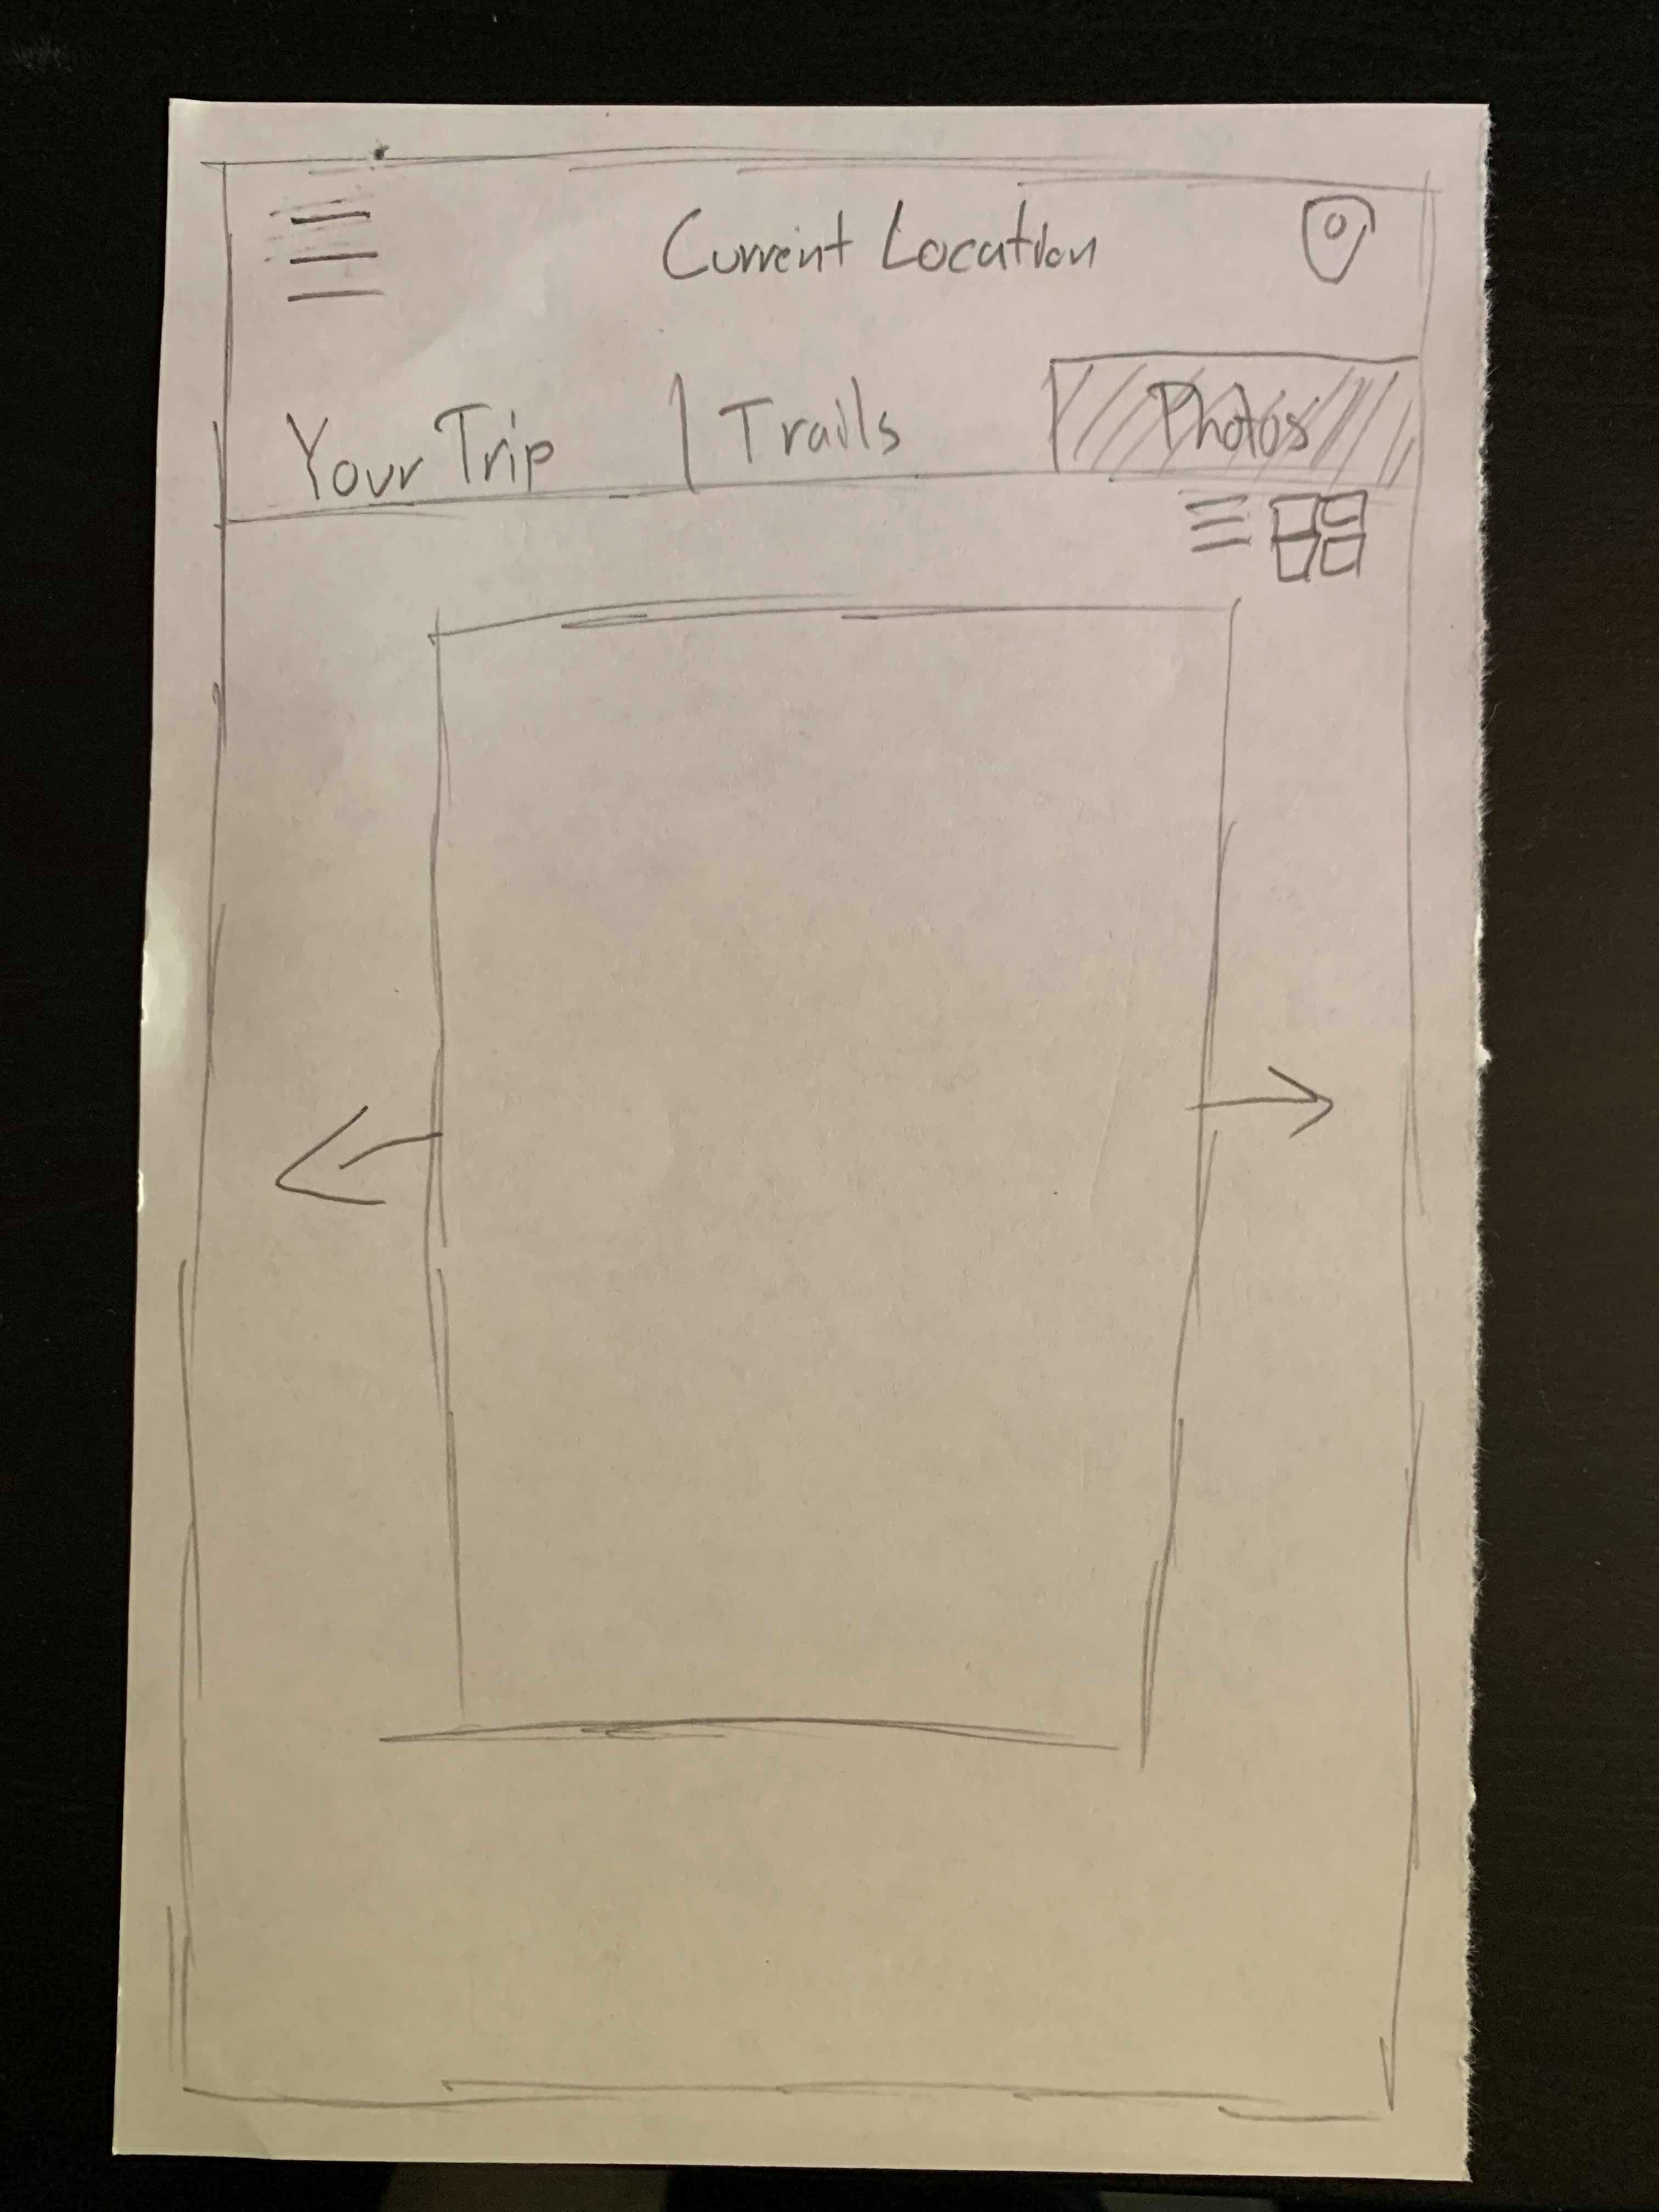 Current Location
Your Trip | Trails
Photos